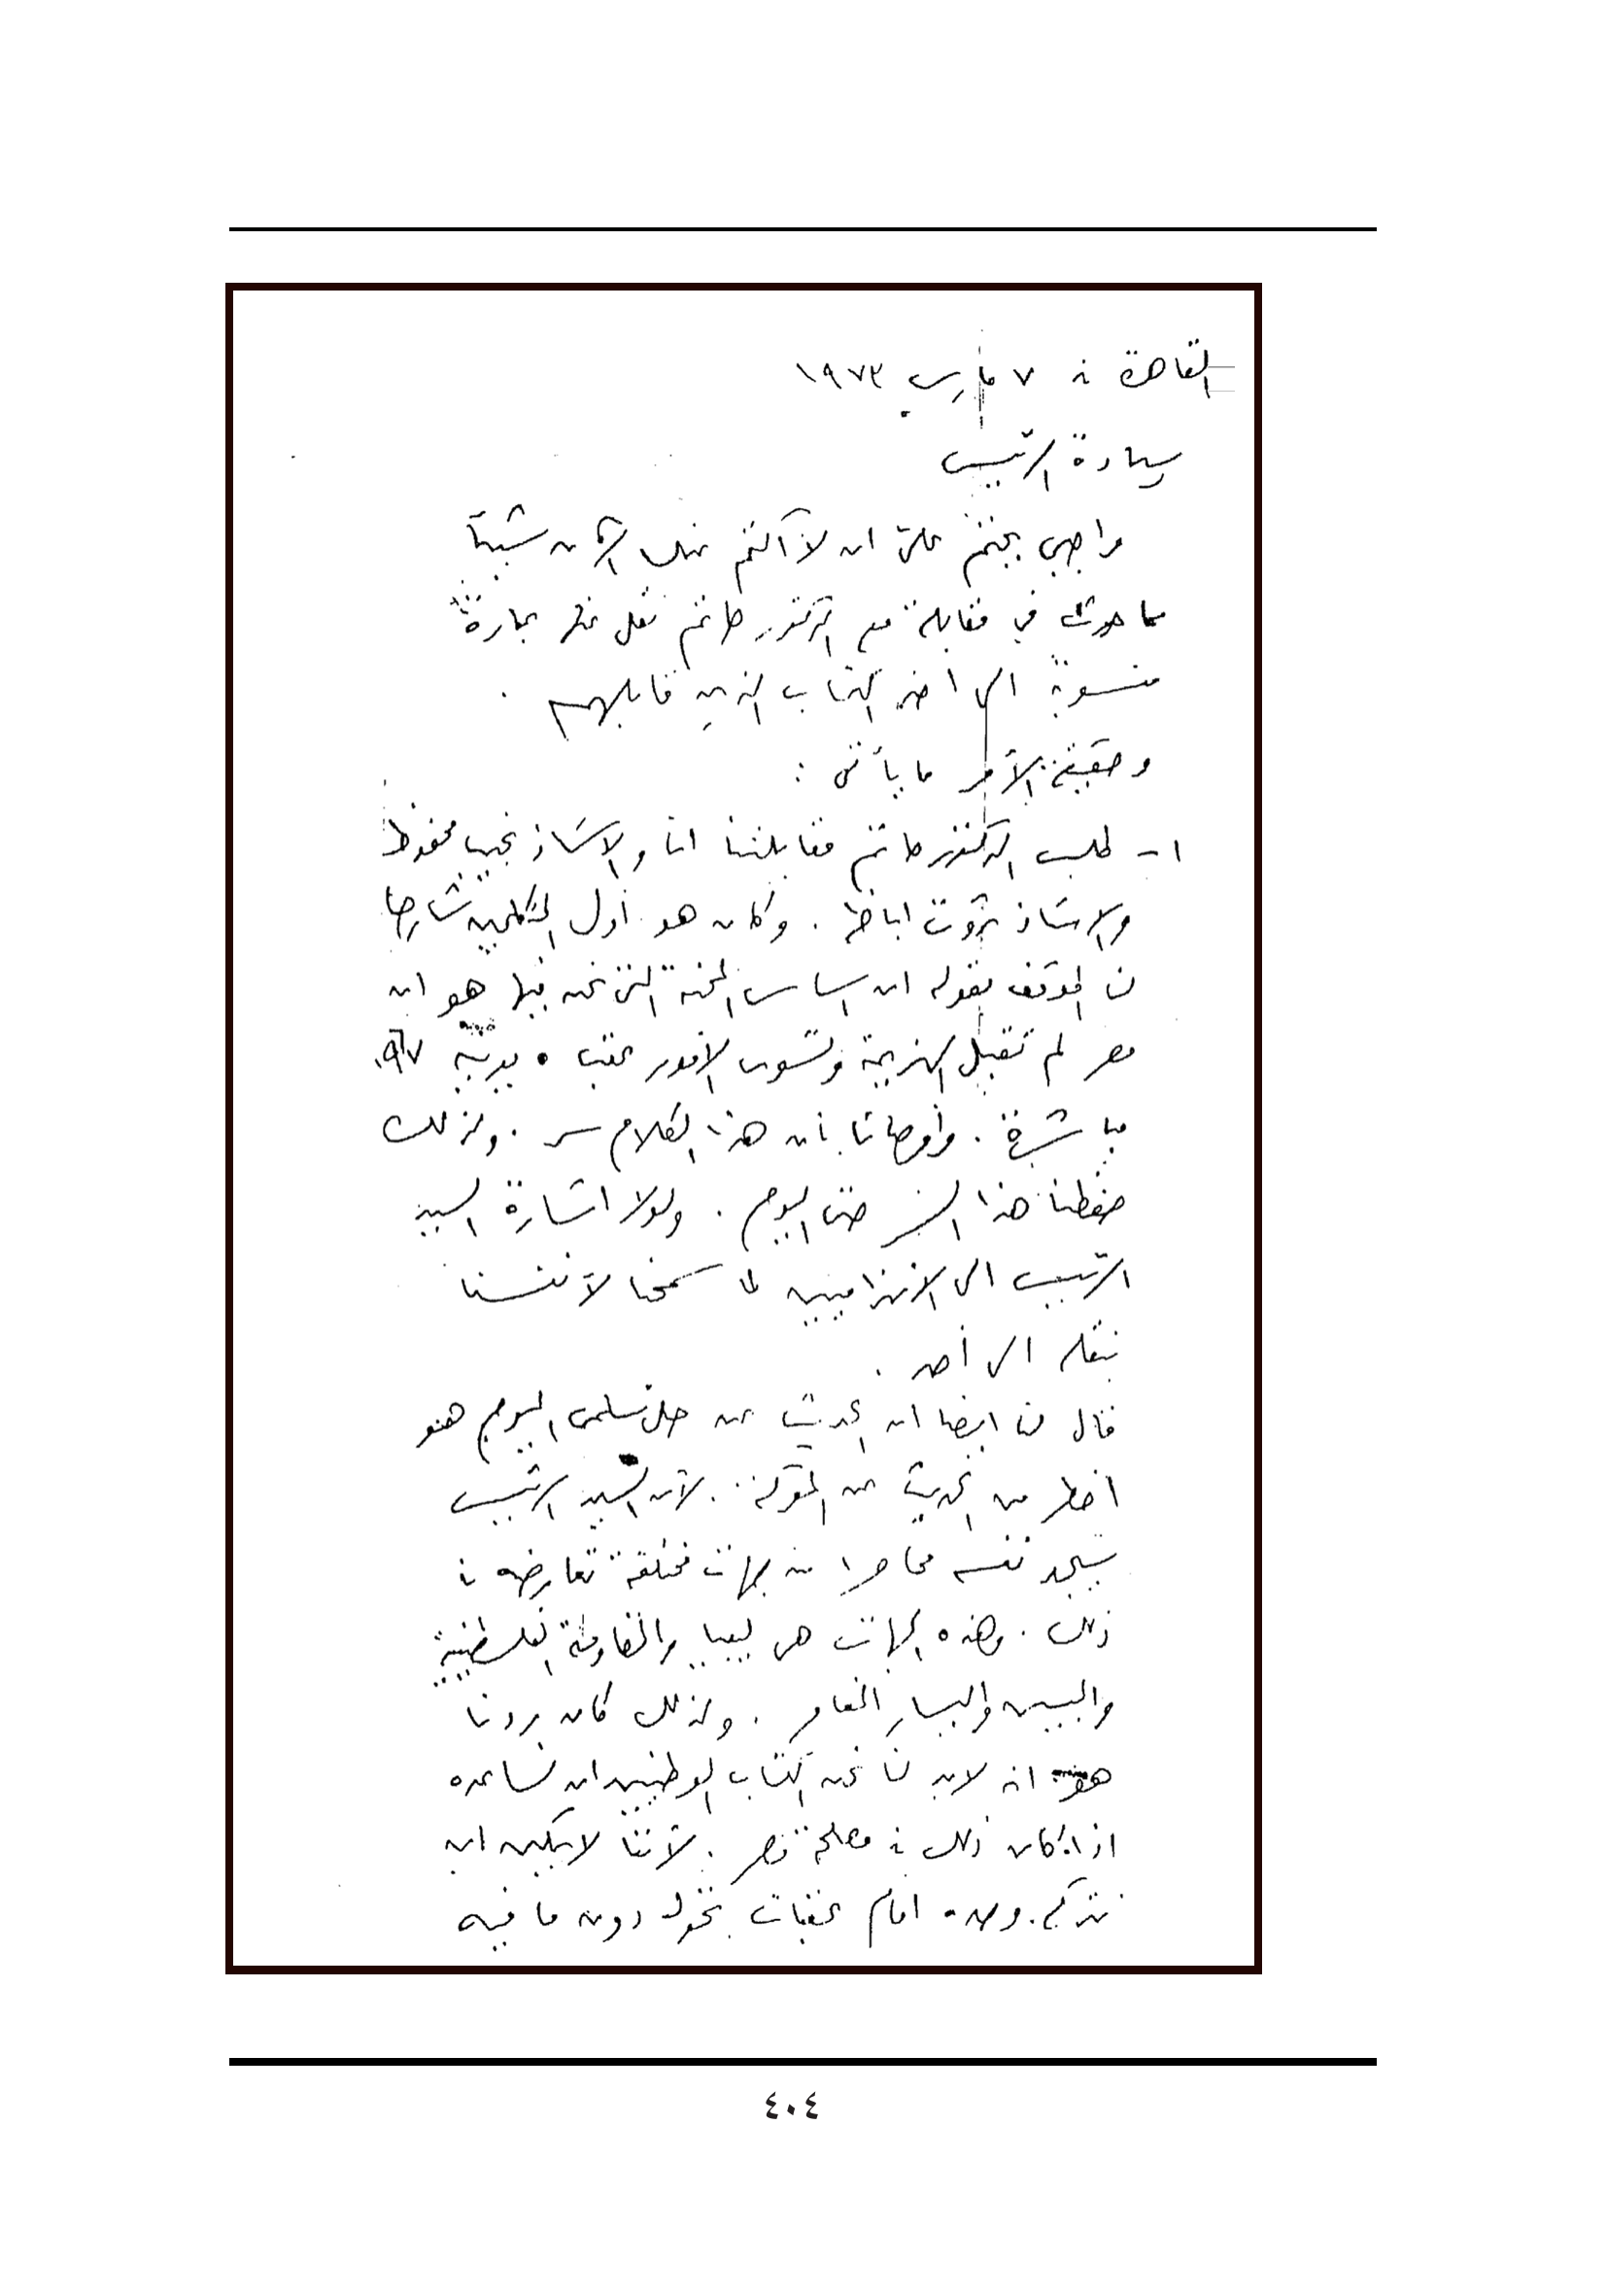 القاهرة في ٧ مارس ١٩٧٣
سيادة الرئيس
واجبي يحتم على ان لا أكتم عنك الآن شيئاً
مما حدث في مقابلة مع الدكتور حاتم نقل عنها عبارة
منسوبة الى احد الكتاب الذين قابلهم .
وحقيقة الأمر ما يأتى :
١ - طلب الدكتور حاتم مقابلتنا انا والاستاذ نجيب محفوظ
والاستاذ ثروت اباظة . وكان هو أول المتكلمين شارحا
لنا الموقف بقوله ان اساس المحنة التى نحن فيها هو ان
مصر لم تقبل الهزيمة وتسوى الأمور عقب ٥ يونيه ١٩٦٧
مباشرة . وأوصانا بأن هذا الكلام سر . ولذلك
حفظنا هذا السر حتى اليوم . ولولا اشارة السيد
الرئيس الى الانهزاميين لما سمحنا لأنفسنا
بنقله الى أحد .
قال لنا ايضا ان الحديث عن حل سلمى اليوم هو
اخطر من الحديث عن المعركة . لأن السيد الرئيس
سيجد نفسه محاصرا من جهات مختلفة تعارضه في
ذلك . وهذه الجهات هى ليبيا والمقاومة الفلسطينية
واليمين واليسار المغامر . ولذلك كان ردنا
هو انه لابد لنا نحن الكتاب الوطنيين ان نساعده
اذا كان ذلك في مصلحة مصر . لأننا لا يمكن ان
نتركه وحده امام عقبات تحول دون ما فيه
٤٠٤